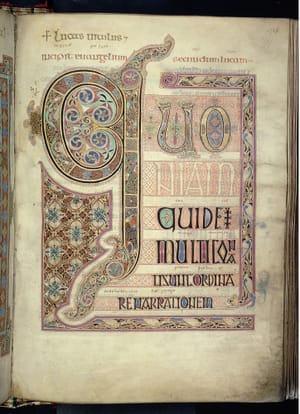 + Lucas uitulus
incipit euangelium secundum lucam
QUO
NIAM
QUIDEM
MULTI CONA
TI SUNT ORDINA
RE NARRATIONEM